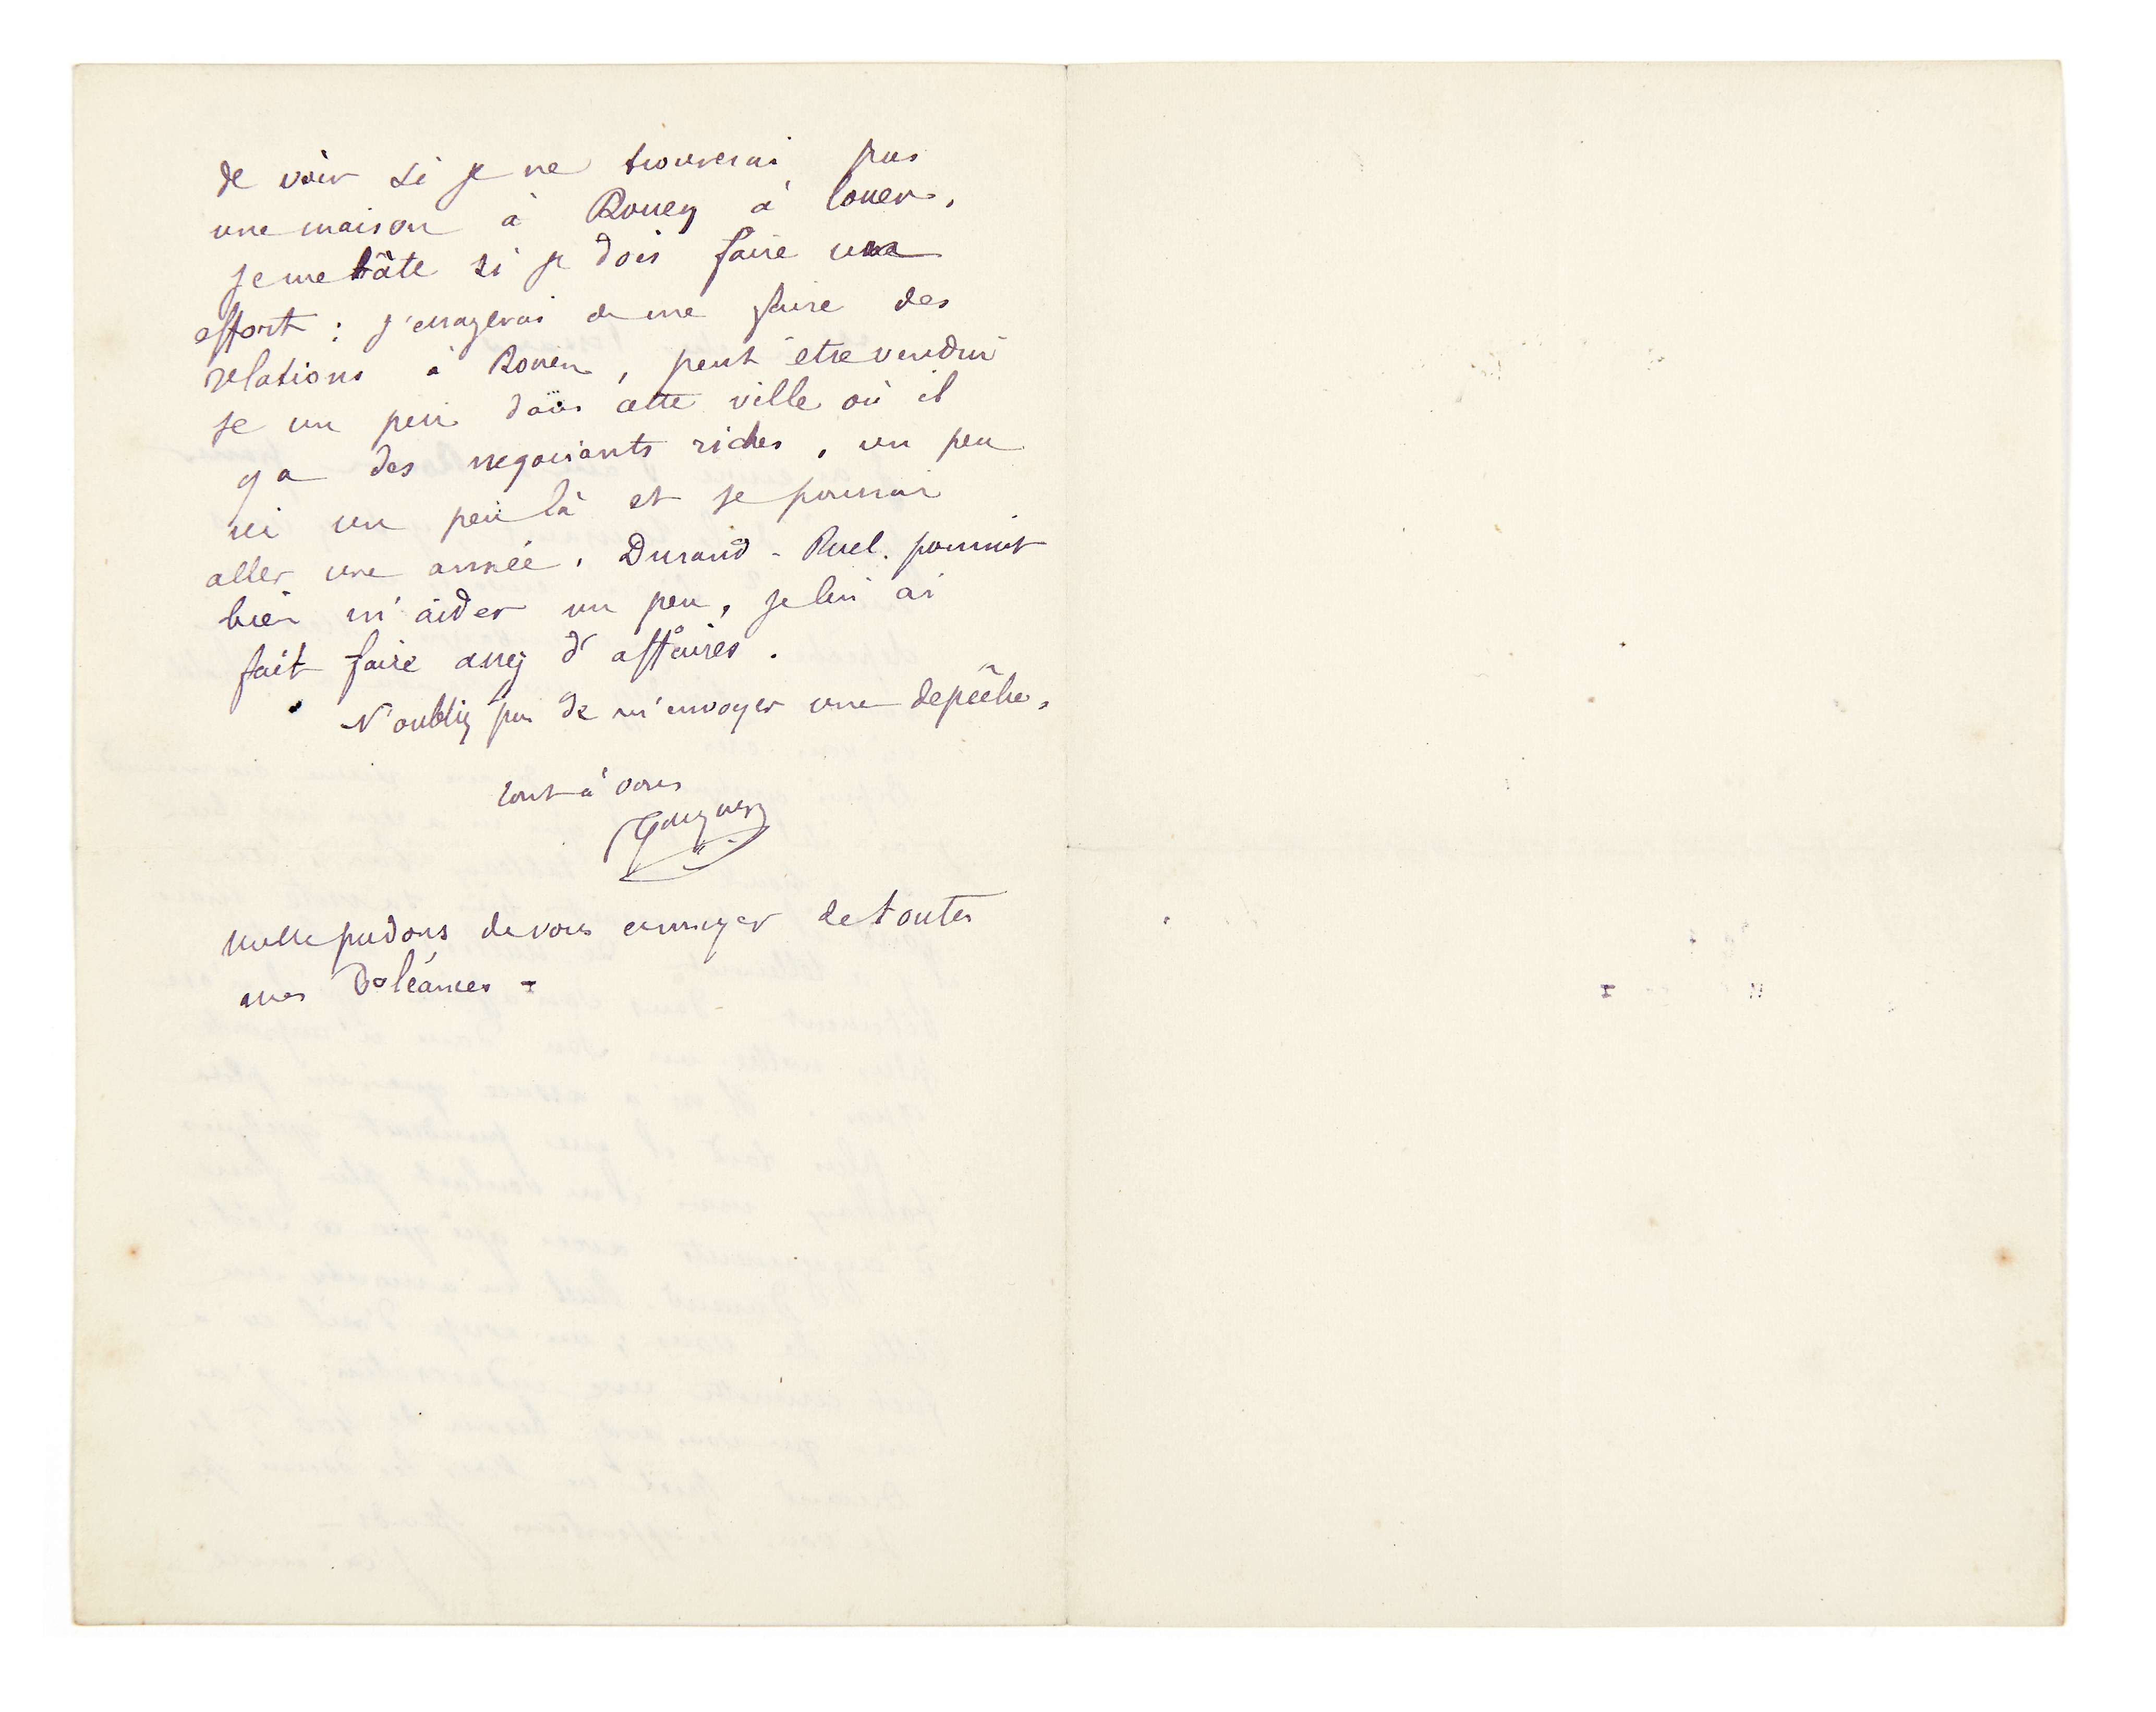 de voir si je ne trouverai pas
une maison à Rouen à louer,
je me hâte si je dois faire une
effort : j'essayerai de me faire des
relations à Rouen, peut être vendrai
je un peu dans cette ville où il
y a des negociants riches, un peu
ici un peu là et je pourrai
aller une année. Durand-Ruel pourrait
bien m'aider un peu, je lui ai
fait faire assez d'affaires.
N'oubliez pas de m'envoyer une depêche,
tout à vous
Gauguin
Mille pardons de vous ennuyer de toutes
mes doléances -